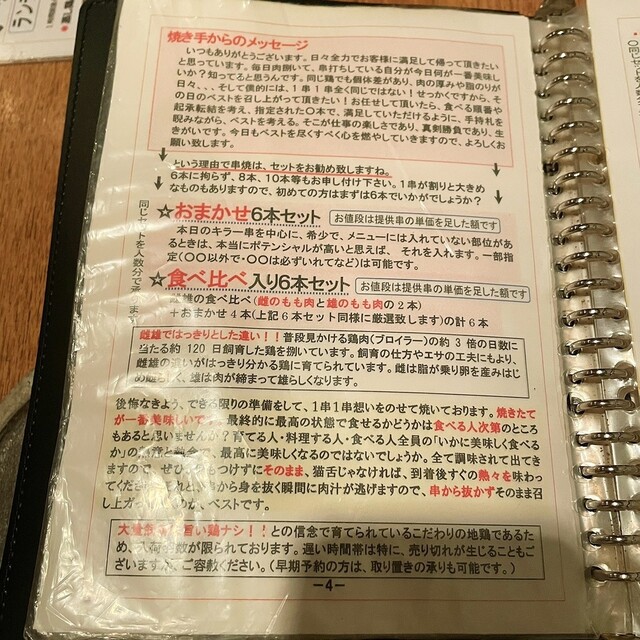 焼き手からのメッセージ
いつもありがとうございます。日々全力でお客様に満足して帰って頂きたい
と思っています。毎日肉捌いて、串打ちしている自分が今日何が一番美味し
いか？知ってると思うんです。同じ鶏でも個体差があり、肉の厚みや脂のりが
日々、、、そして僕的には、1串1串全く同じではない！せっかくですから、そ
の日のベストを召し上がって頂きたい！お任せして頂いたら、食べる順番や
起承転結を考え、指定された〇本で、満足していただけるように、手持札を
睨みながら、ベストを考える。そこが仕事の楽しさであり、真剣勝負であり、生
きがいです。今日もベストを尽くすべく心を燃やしていきますので、よろしくお
願い致します。
という理由で串焼は、セットをお勧め致しますね。
6本に拘らず、8本、10本等もお申し付け下さい。1串が割りと大きめ
なものもありますので、初めての方はまずは6本でいかがでしょうか？
☆おまかせ6本セット お値段は提供串の単価を足した額です
本日のキラー串を中心に、希少で、メニューには入れていない部位があ
るときは、本当にポテンシャルが高いと思えば、それを入れます。一部指
定(〇〇以外で・〇〇は必ずいれてなど)は可能です。
☆食べ比べ入り6本セット お値段は提供串の単価を足した額です
雌雄の食べ比べ(雌のもも肉と雄のもも肉の2本)
＋おまかせ4本(上記6本セット同様に厳選致します)の計6本
雌雄ではっきりとした違い！！普段見かける鶏肉(ブロイラー)の約3倍の日数に
当たる約120日飼育した鶏を捌いています。飼育の仕方やエサの工夫にもより、
雌雄の違いがはっきり分かる鶏に育てられています。雌は脂が乗り卵を産みはじ
雄は肉が締まって雄らしくなります。
後悔なきよう、できる限りの準備をして、1串1串想いをのせて焼いております。焼きたて
が一番美味しい 最終的に最高の状態で食せるかどうかは食べる人次第のところ
もあると思いませんか？育てる人・料理する人・食べる人全員の「いかに美味しく食べる
か」の 最高に美味しくなるのではないでしょうか。全て調味されて出てき
ますので、ぜひ つけずにそのまま、猫舌じゃなければ、到着後すぐの熱々を味わっ
てください 串から身を抜く瞬間に肉汁が逃げますので、串から抜かずそのまま召
し上が が、ベストです。
鶏ナシ！！との信念で育てられているこだわりの地鶏であるた
め、入荷 数が限られております。遅い時間帯は特に、売り切れが生じることもご
ざいます ご容赦ください。(早期予約の方は、取り置きの承りも可能です。)
－4－
同じセットを人数分で